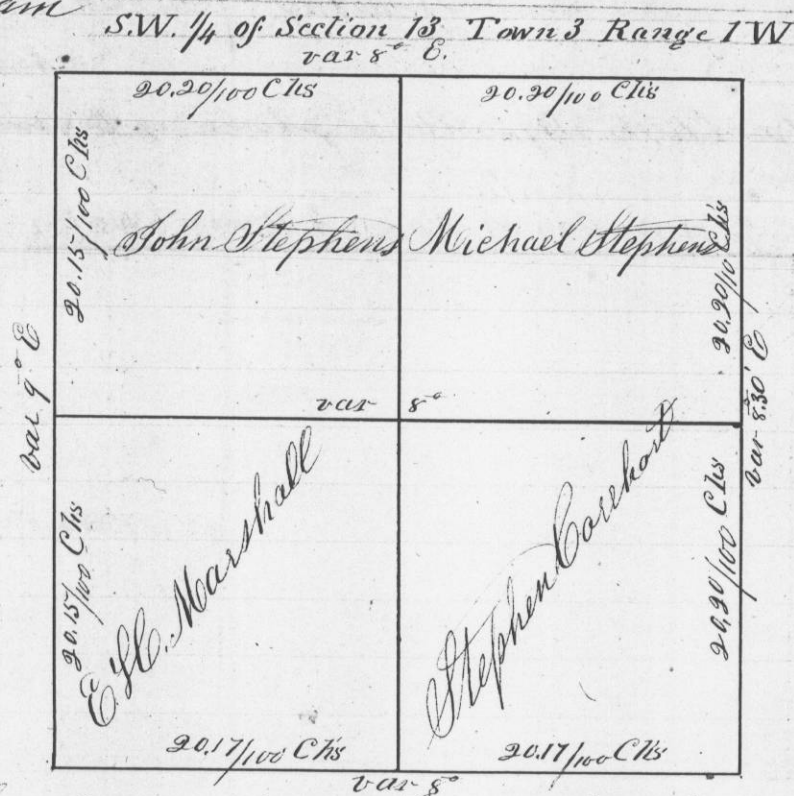 S.W. 1/4 of Section 13 Town 3 Range 1 W
var 8° E.
20.20/100 Chs
20.20/100 Chs
20.15/100 Chs
John Stephens
Michael Stephens
20.20/10 Chs
var 9° E
var 8°.30' E
var 8°
20.15/100 Chs
E H. Marshall
Stephen
20.20/100 Chs
20.17/100 Chs
20.17/100 Chs
var 8°